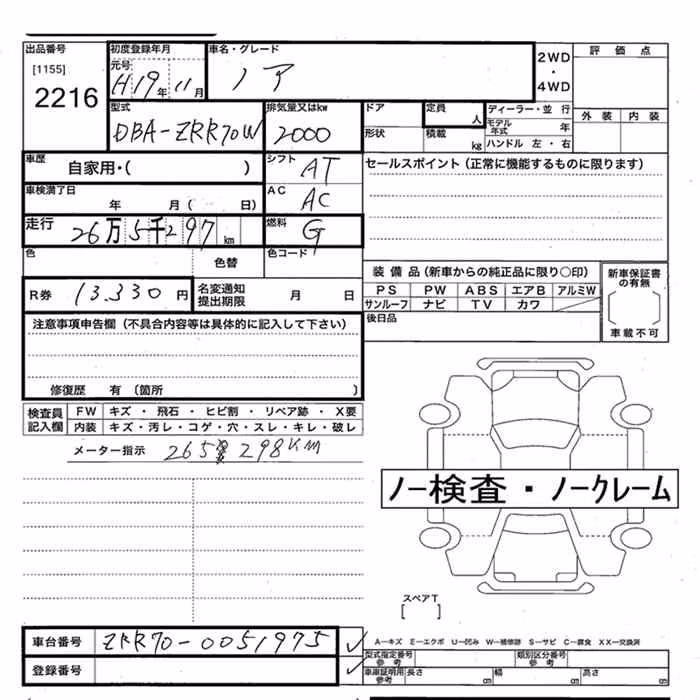 出品番号 初度登録年月 車名・グレード 2WD・4WD 評価点
[1155] 元号 H19年11月 ノア
2216
型式 排気量又はkw ドア 定員 人 ディーラー・並行 外装 内装
DBA-ZRR70W 2000 形状 積載 kg モデル年式 年
ハンドル 左・右
車歴 自家用・( ) シフト AT セールスポイント(正常に機能するものに限ります)
車検満了日 年 月( 日) AC AC
走行 26万5千297km 燃料 G
色 色替 色コード 装備品(新車からの純正品に限り○印) 新車保証書の有無
R券 13,330円 名変通知提出期限 月 日 PS PW ABS エアB アルミW
サンルーフ ナビ TV カワ 車載不可
注意事項申告欄(不具合内容等は具体的に記入して下さい) 後日品
修復歴 有 (箇所 )
検査員記入欄 FW キズ・飛石・ヒビ割・リペア跡・X要
内装 キズ・汚レ・コゲ・穴・スレ・キレ・破レ
メーター指示 265 298KM
ノー検査・ノークレーム
スペアT
[ ]
車台番号 ZRR70-0051975 ✓ A—キズ E—エクボ U—凹み W—補修跡 S—サビ C—腐食 XX—交換済
型式指定番号 参考 類別区分番号 参考
登録番号 ✓ 車庫証明用 参考 長さ cm 幅 cm 高さ cm